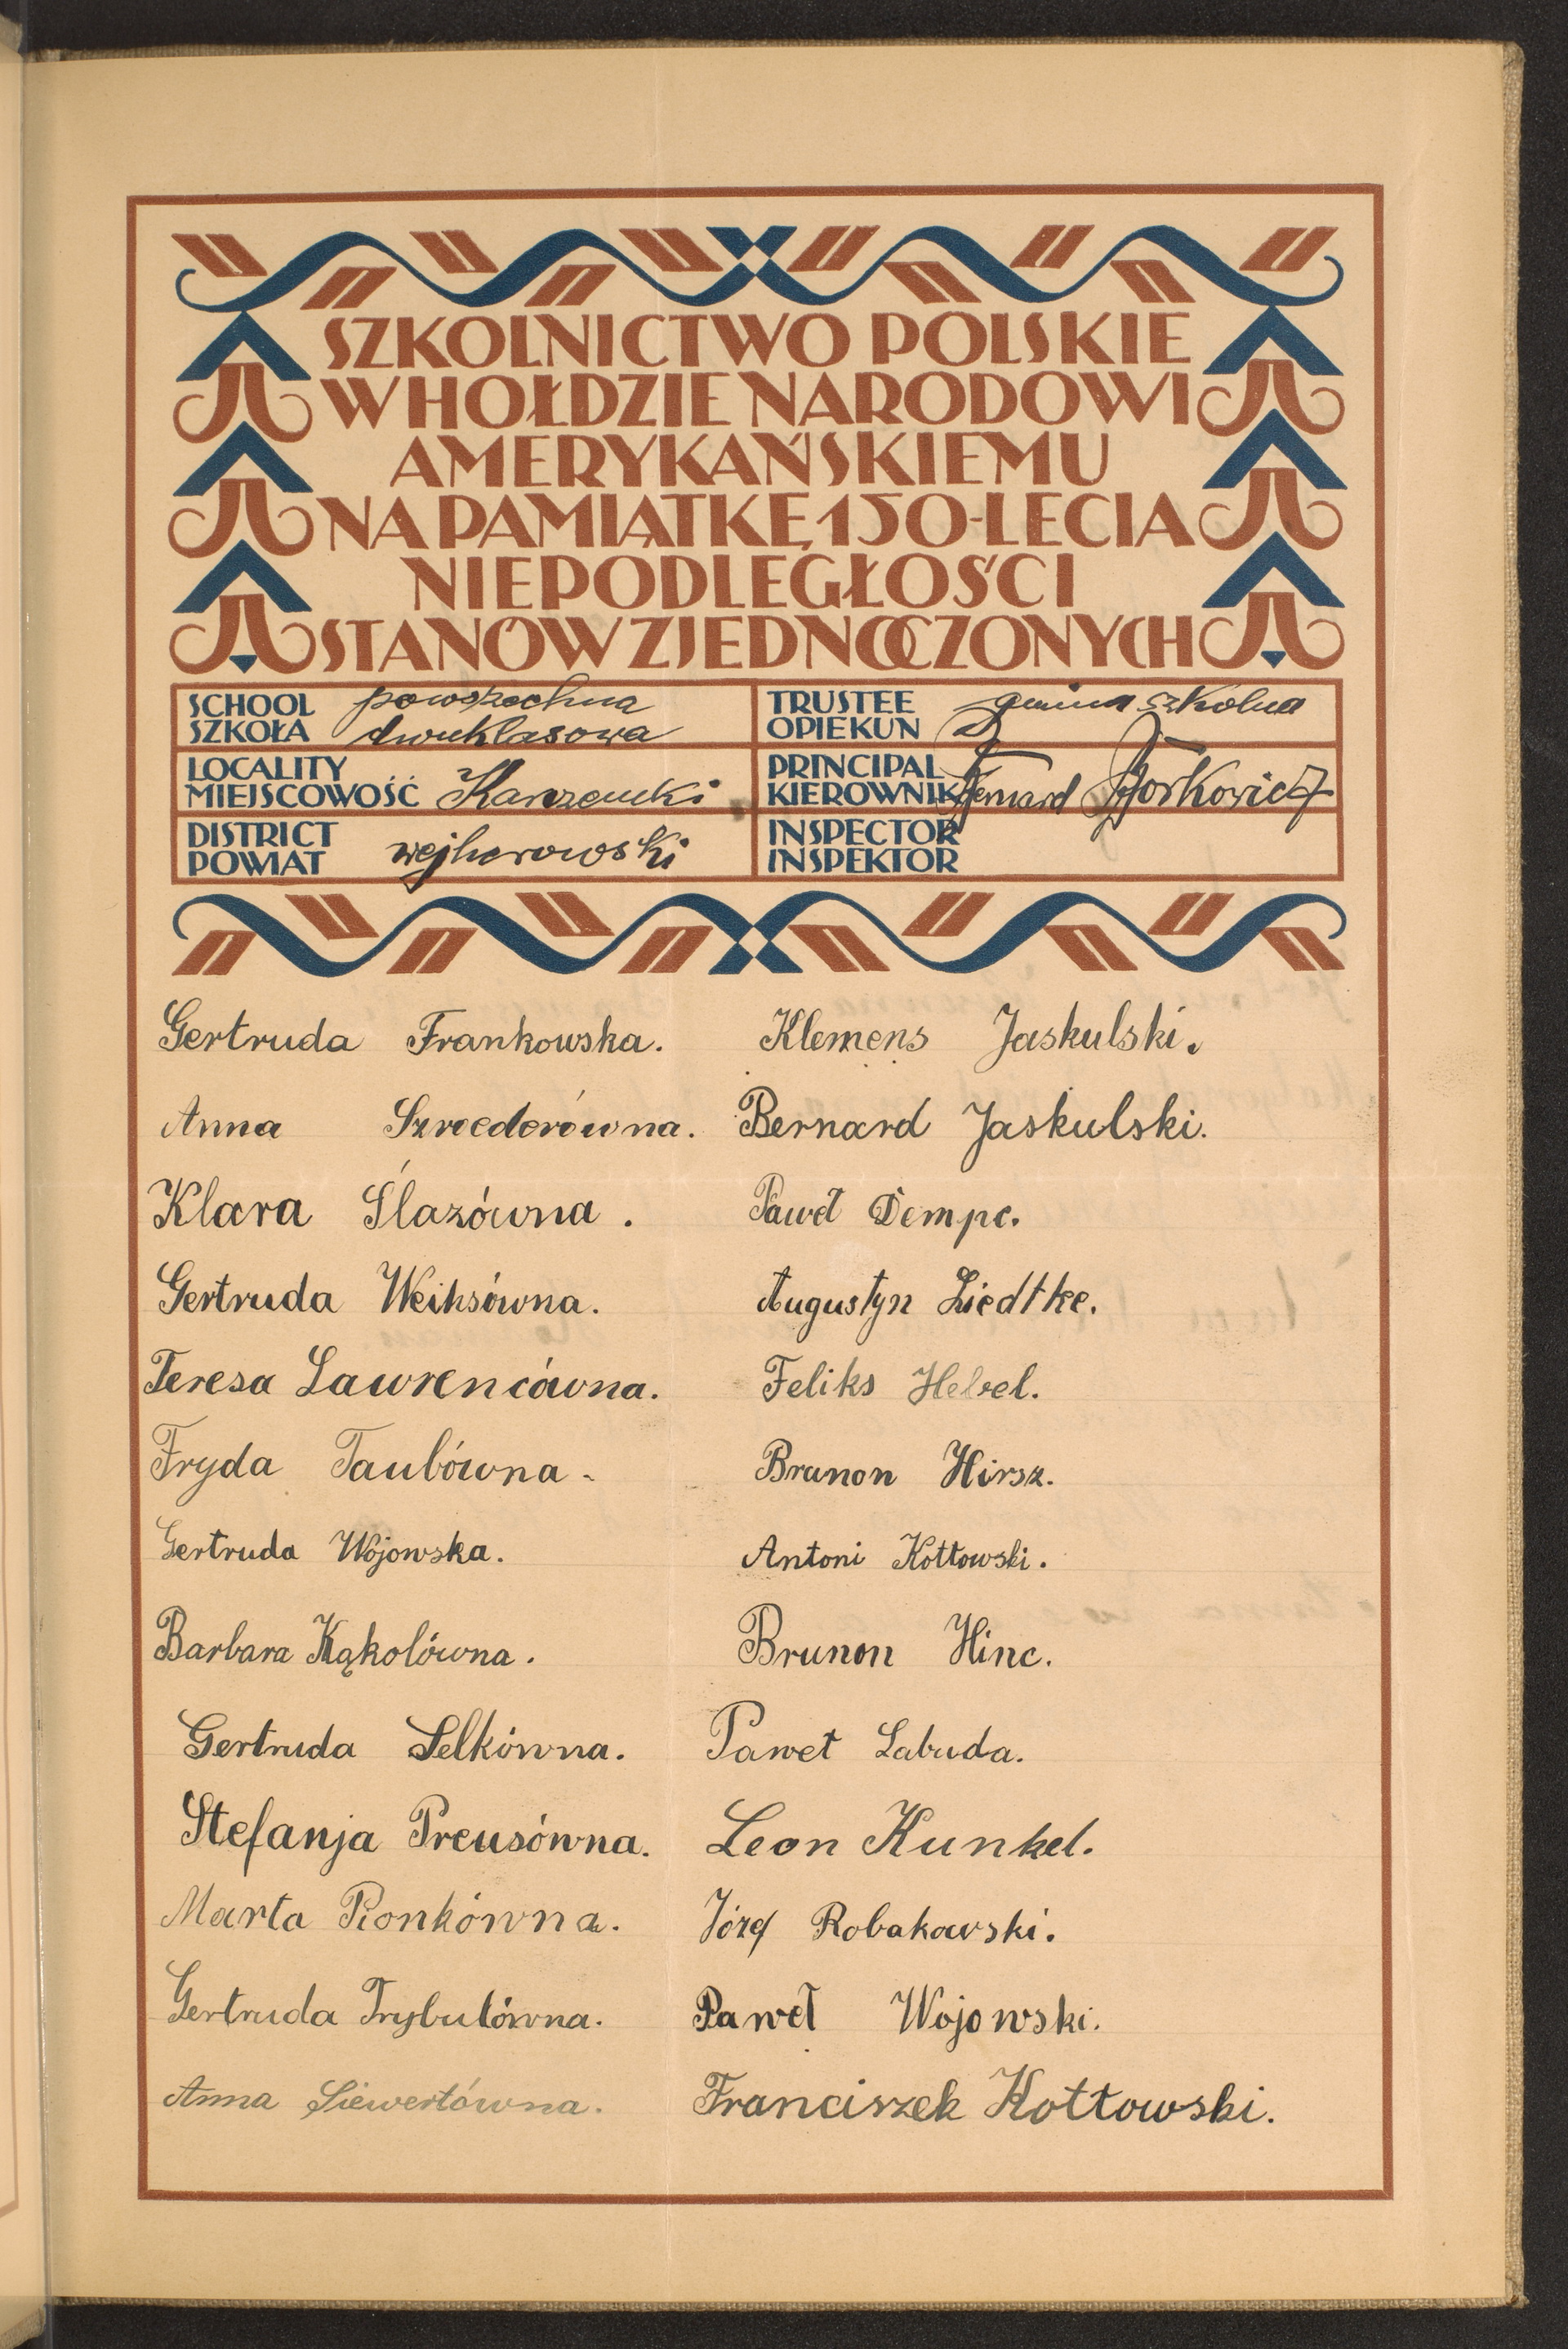 SZKOLNICTWO POLSKIE
W HOŁDZIE NARODOWI
AMERYKAŃSKIEMU
NA PAMIĄTKĘ 150-LECIA
NIEPODLEGŁOŚCI
STANÓW ZJEDNOCZONYCH
SCHOOL
SZKOŁA
powszechna
dwuklasowa
TRUSTEE
OPIEKUN
gmina szkolna
LOCALITY
MIEJSCOWOŚĆ
PRINCIPAL
KIEROWNIK
Bernard
DISTRICT
POWIAT
wejherowski
INSPECTOR
INSPEKTOR
Gertruda Frankowska.
Anna Szroederówna.
Klara Ślazówna.
Gertruda Weihsówna.
Teresa Lawrencówna.
Fryda Taubówna.
Gertruda Wójowska.
Barbara Kąkolówna.
Gertruda Selkówna.
Stefanja Preusówna.
Marta Pionkówna.
Gertruda Trybutówna.
Anna Siewertówna.
Klemens Jaskulski.
Bernard Jaskulski.
Paweł Dempc.
Augustyn Liedtke.
Feliks Hebel.
Brunon Hirsz.
Antoni Kottowski.
Brunon Hinc.
Paweł Labuda.
Leon Kunkel.
Józef Robakowski.
Paweł Wojowski.
Franciszek Kottowski.